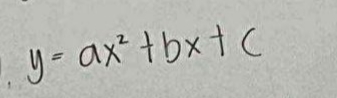 y = ax² + bx + c